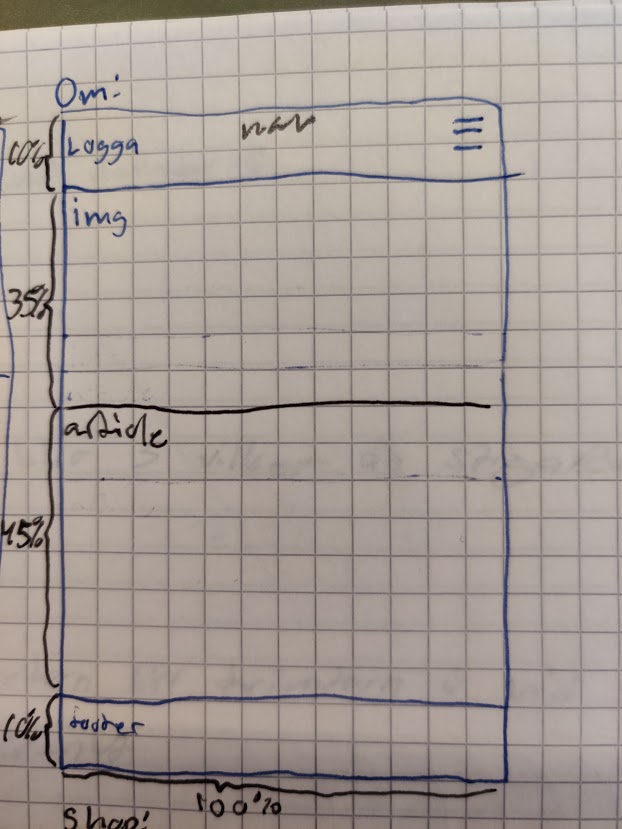 Om:
nav
10% Logga
img
35%
article
45%
10% footer
100%
Shop: